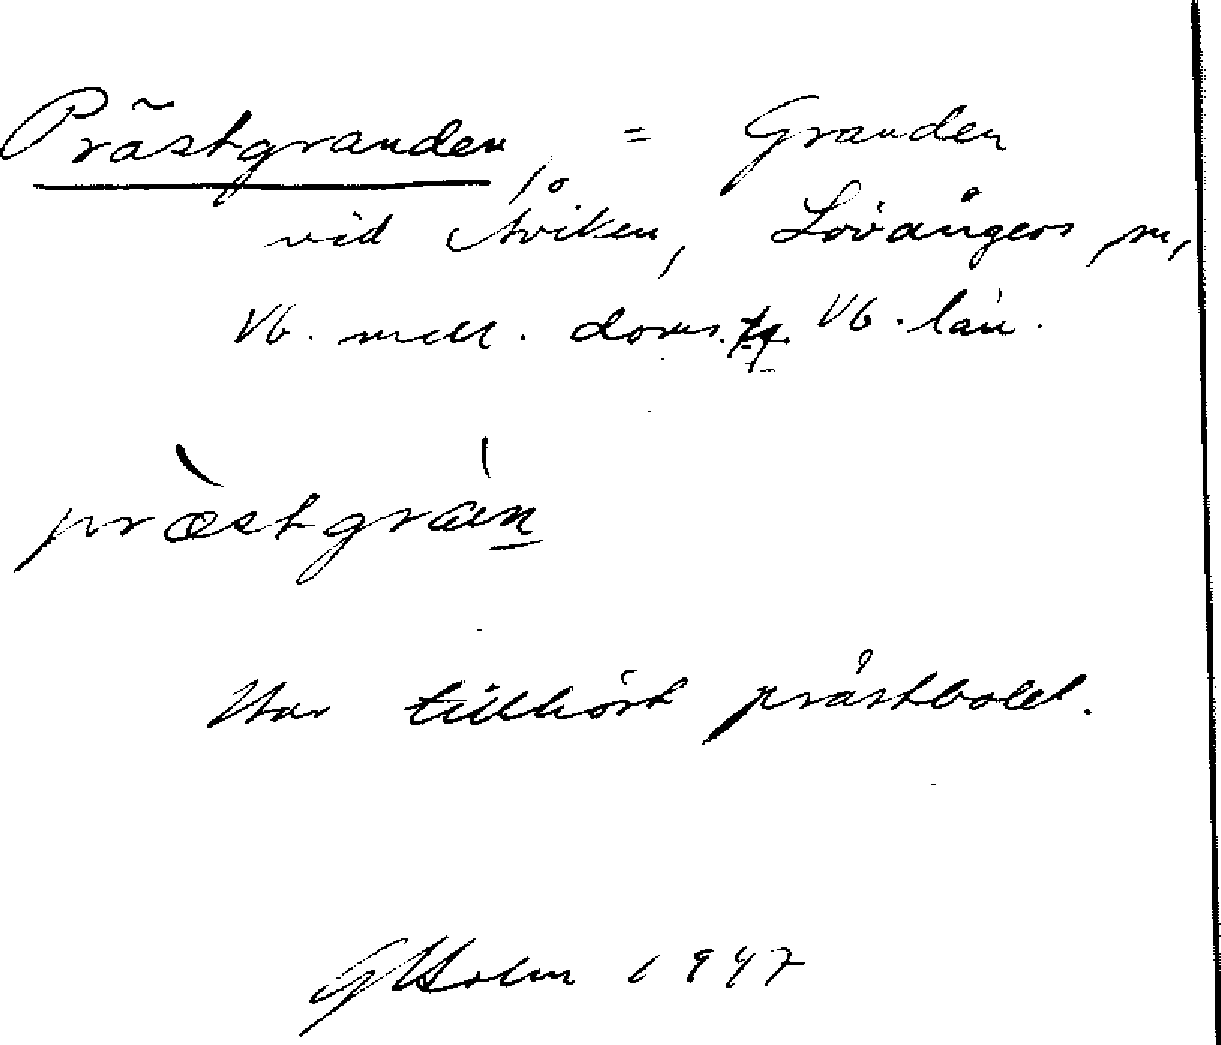 Prästgranden, = Granden
vid Åviken, Lövångers sn,
Vb. mell. doms. Vb. län.
præstgràn
Har tillhört prästbolet.
G Holm 1947